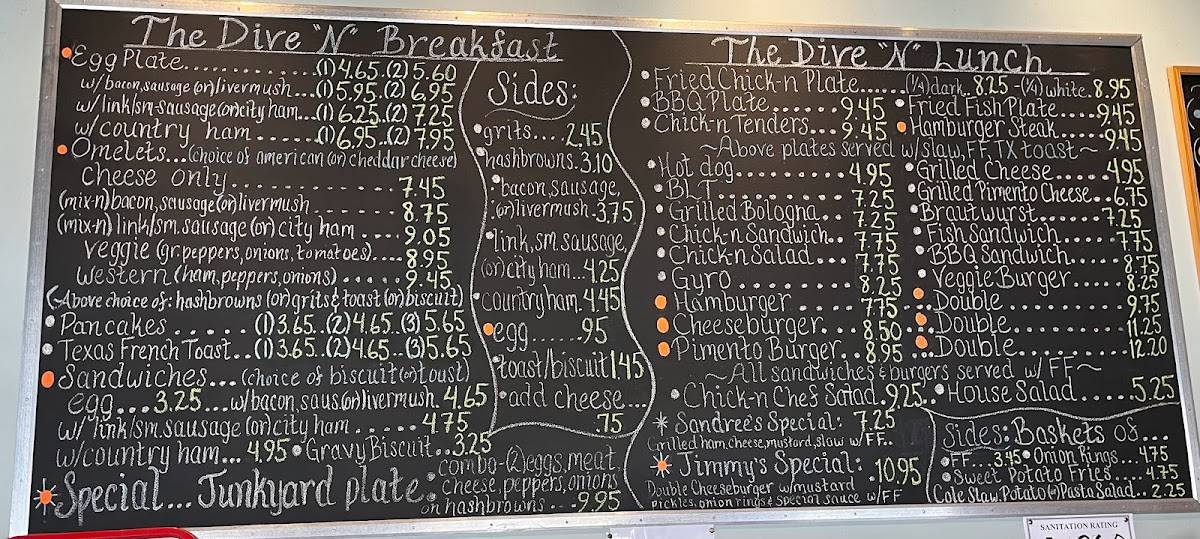 The Dive "N" Breakfast
Egg Plate.............(1)4.65.(2)5.60
w/bacon,sausage (or)livermush...(1)5.95.(2)6.95
w/link/sm-sausage(or)city ham...(1)6.25.(2)7.25
w/country ham.....(1)6.95..(2)7.95
Omelets...(choice of american (or) cheddar cheese)
cheese only..................7.45
(mix-n)bacon,sausage(or)livermush........8.75
(mix-n)link/sm.sausage (or) city ham....9.05
veggie (gr.peppers,onions,tomatoes)....8.95
Western (ham,peppers,onions).......9.45
(~Above choice of: hashbrowns (or)grits & toast (or)biscuit)
Pancakes......(1)3.65..(2)4.65..(3)5.65
Texas French Toast..(1)3.65..(2)4.65..(3)5.65
Sandwiches...(choice of biscuit(or)toast)
egg...3.25...w/bacon,saus.(or)livermush.4.65
w/link/sm.sausage(or)city ham......4.75
w/country ham...4.95 Gravy Biscuit..3.25
Special...Junkyard plate:
combo-(2)eggs,meat,
cheese,peppers,onions
on hashbrowns...9.95
Sides:
grits....2.45
hashbrowns.3.10
bacon,sausage,
(or)livermush.3.75
link,sm.sausage,
(or)city ham..4.25
country ham.4.45
egg.......95
toast/biscuit 1.45
add cheese...
.75
The Dive "N" Lunch
Fried Chick-n Plate......(1/4)dark..8.25-(1/4)white.8.95
BBQ Plate.......9.45 Fried Fish Plate.....9.45
Chick-n Tenders...9.45 Hamburger Steak....9.45
~Above plates served w/slaw,FF,TX toast~
Hot dog..........4.95 Grilled Cheese.....4.95
BLT.............7.25 Grilled Pimento Cheese..6.75
Grilled Bologna..7.25 Brautwurst......7.25
Chick-n Sandwich..7.75 Fish Sandwich.....7.75
Chick-n Salad...7.75 BBQ Sandwich.....8.75
Gyro............8.25 Veggie Burger....8.25
Hamburger......7.75 Double...........9.75
Cheeseburger...8.50 Double..........11.25
Pimento Burger..8.95 Double..........12.20
~All sandwiches & burgers served w/FF~
Chick-n Chefs Salad.9.25.. House Salad.....5.25
Sandree's Special: 7.25
Grilled ham,cheese,mustard,slaw w/FF..
Jimmy's Special: .10.95
Double Cheeseburger w/mustard
pickles,onion rings & special sauce w/FF
Sides: Baskets of...
FF...3.45 Onion Rings...4.75
Sweet Potato Fries....4.75
Cole Slaw,Potato(or)Pasta Salad..2.25
SANITATION RATING